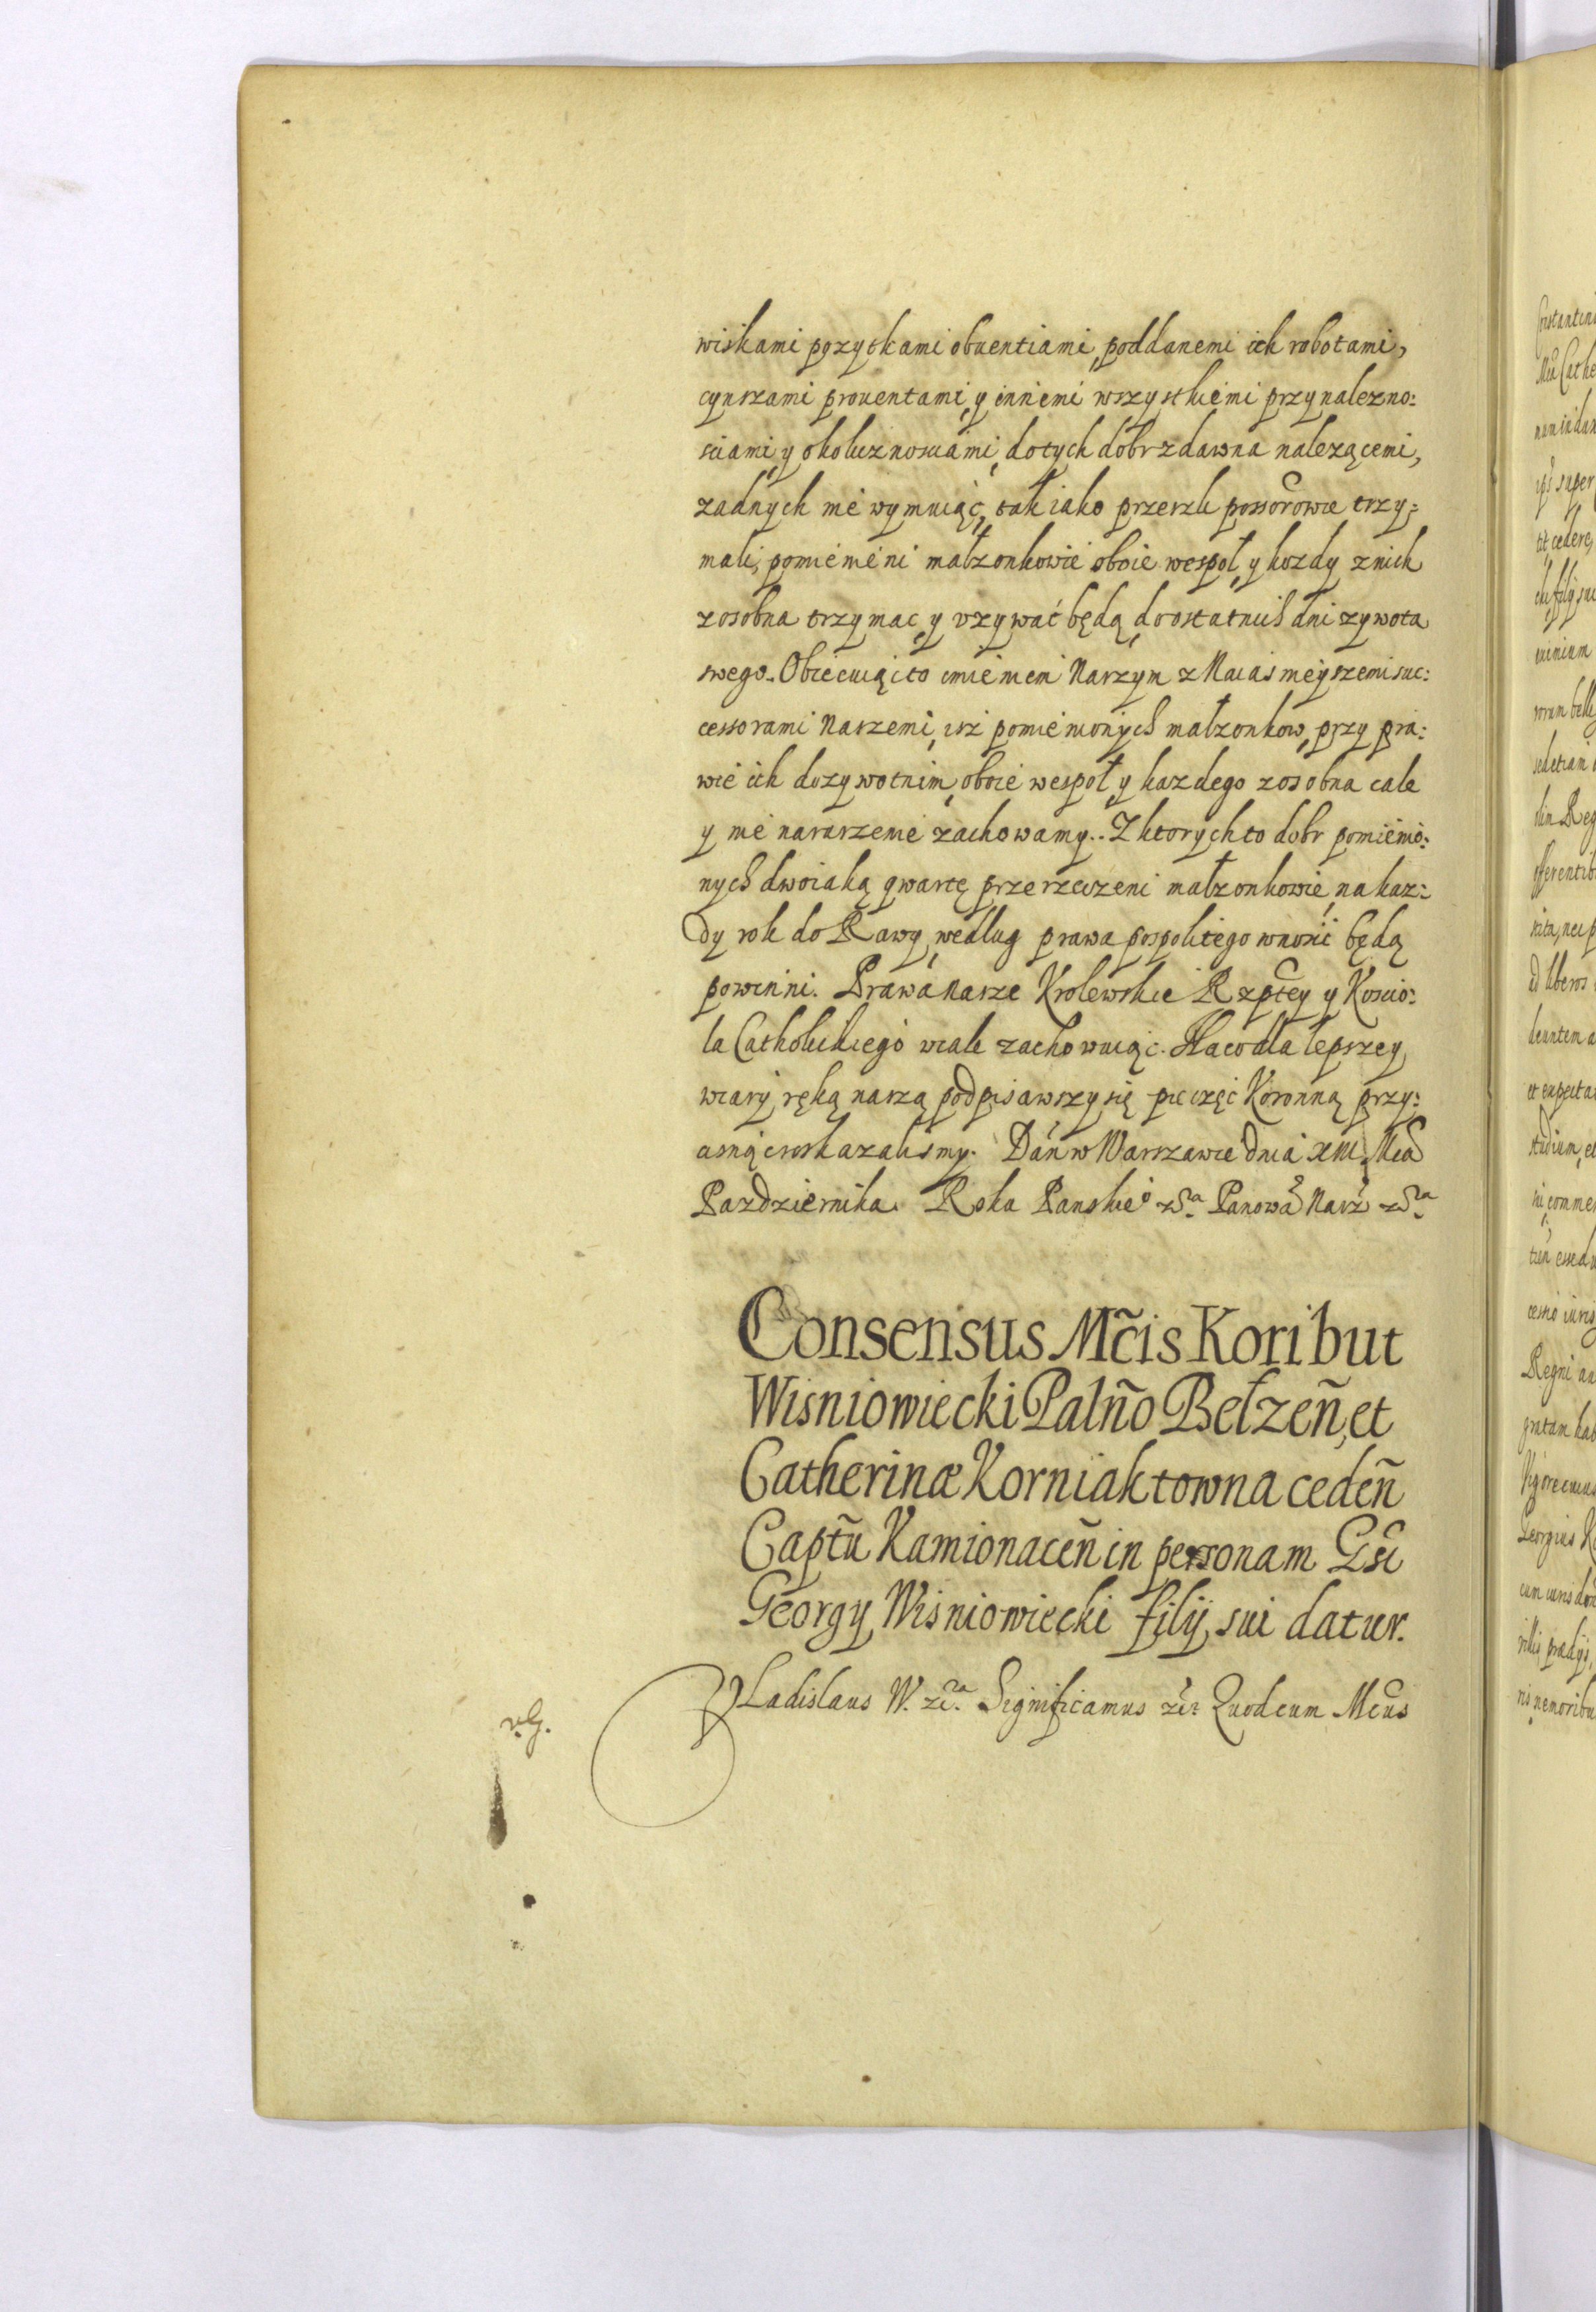 wiskami pozytkami obuentiami, poddanemi ich robotami,
cynszami prouentami, y innemi wszystkiemi przynalezno:
sciami, y okolicznosciami, do tych dobr zdawna nalezącemi,
zadnych nie wymuiąc, tak iako przeszli possõrowie trzy:
mali, pomienieni małzonkowie oboie wespoł, y kozdy znich
zosobna trzymac, y vzywać będą, do ostatnich dni zywota
swego. Obiecuiąc to imieniem Naszym z Naiasnieyszemi suc:
cessorami Naszemi, isz pomienionych małzonkow, przy pra:
wie ich dozywotnim, oboie wespoł, y kazdego zosobna cale
y nie naruszenie zachowamy. Z ktorych to dobr pomienio:
nych dwoiaką qwartę przerzeczeni małzonkowie, na kaz:
dy rok do Rawy, wedlug prawa pospolitego wnosić będą
powinni. Prawa Nasze Krolewskie Rzptey y Koscio:
la Catholickiego wcale zachowuiąc. Na co dla lepszey
wiary, ręką naszą podpisawszy się pieczęć Koronną przy:
cisnąc roskazalismy. Dan w Warszawie dnia XIII. Mca
Pazdziernika. Roku Panskieo zca Panowa Nasz zca
Consensus Mc̃is Koribut
Wisniowiecki Palño Bełzeñ, et
Catherinæ Korniaktowna cedeñ
Capt̃u Kamionaceñ in personam Gsi
Georgy Wisniowiecki filÿ sui datur.
Vladislaus IV. zca. Significamus zc: Quod cum Mcus